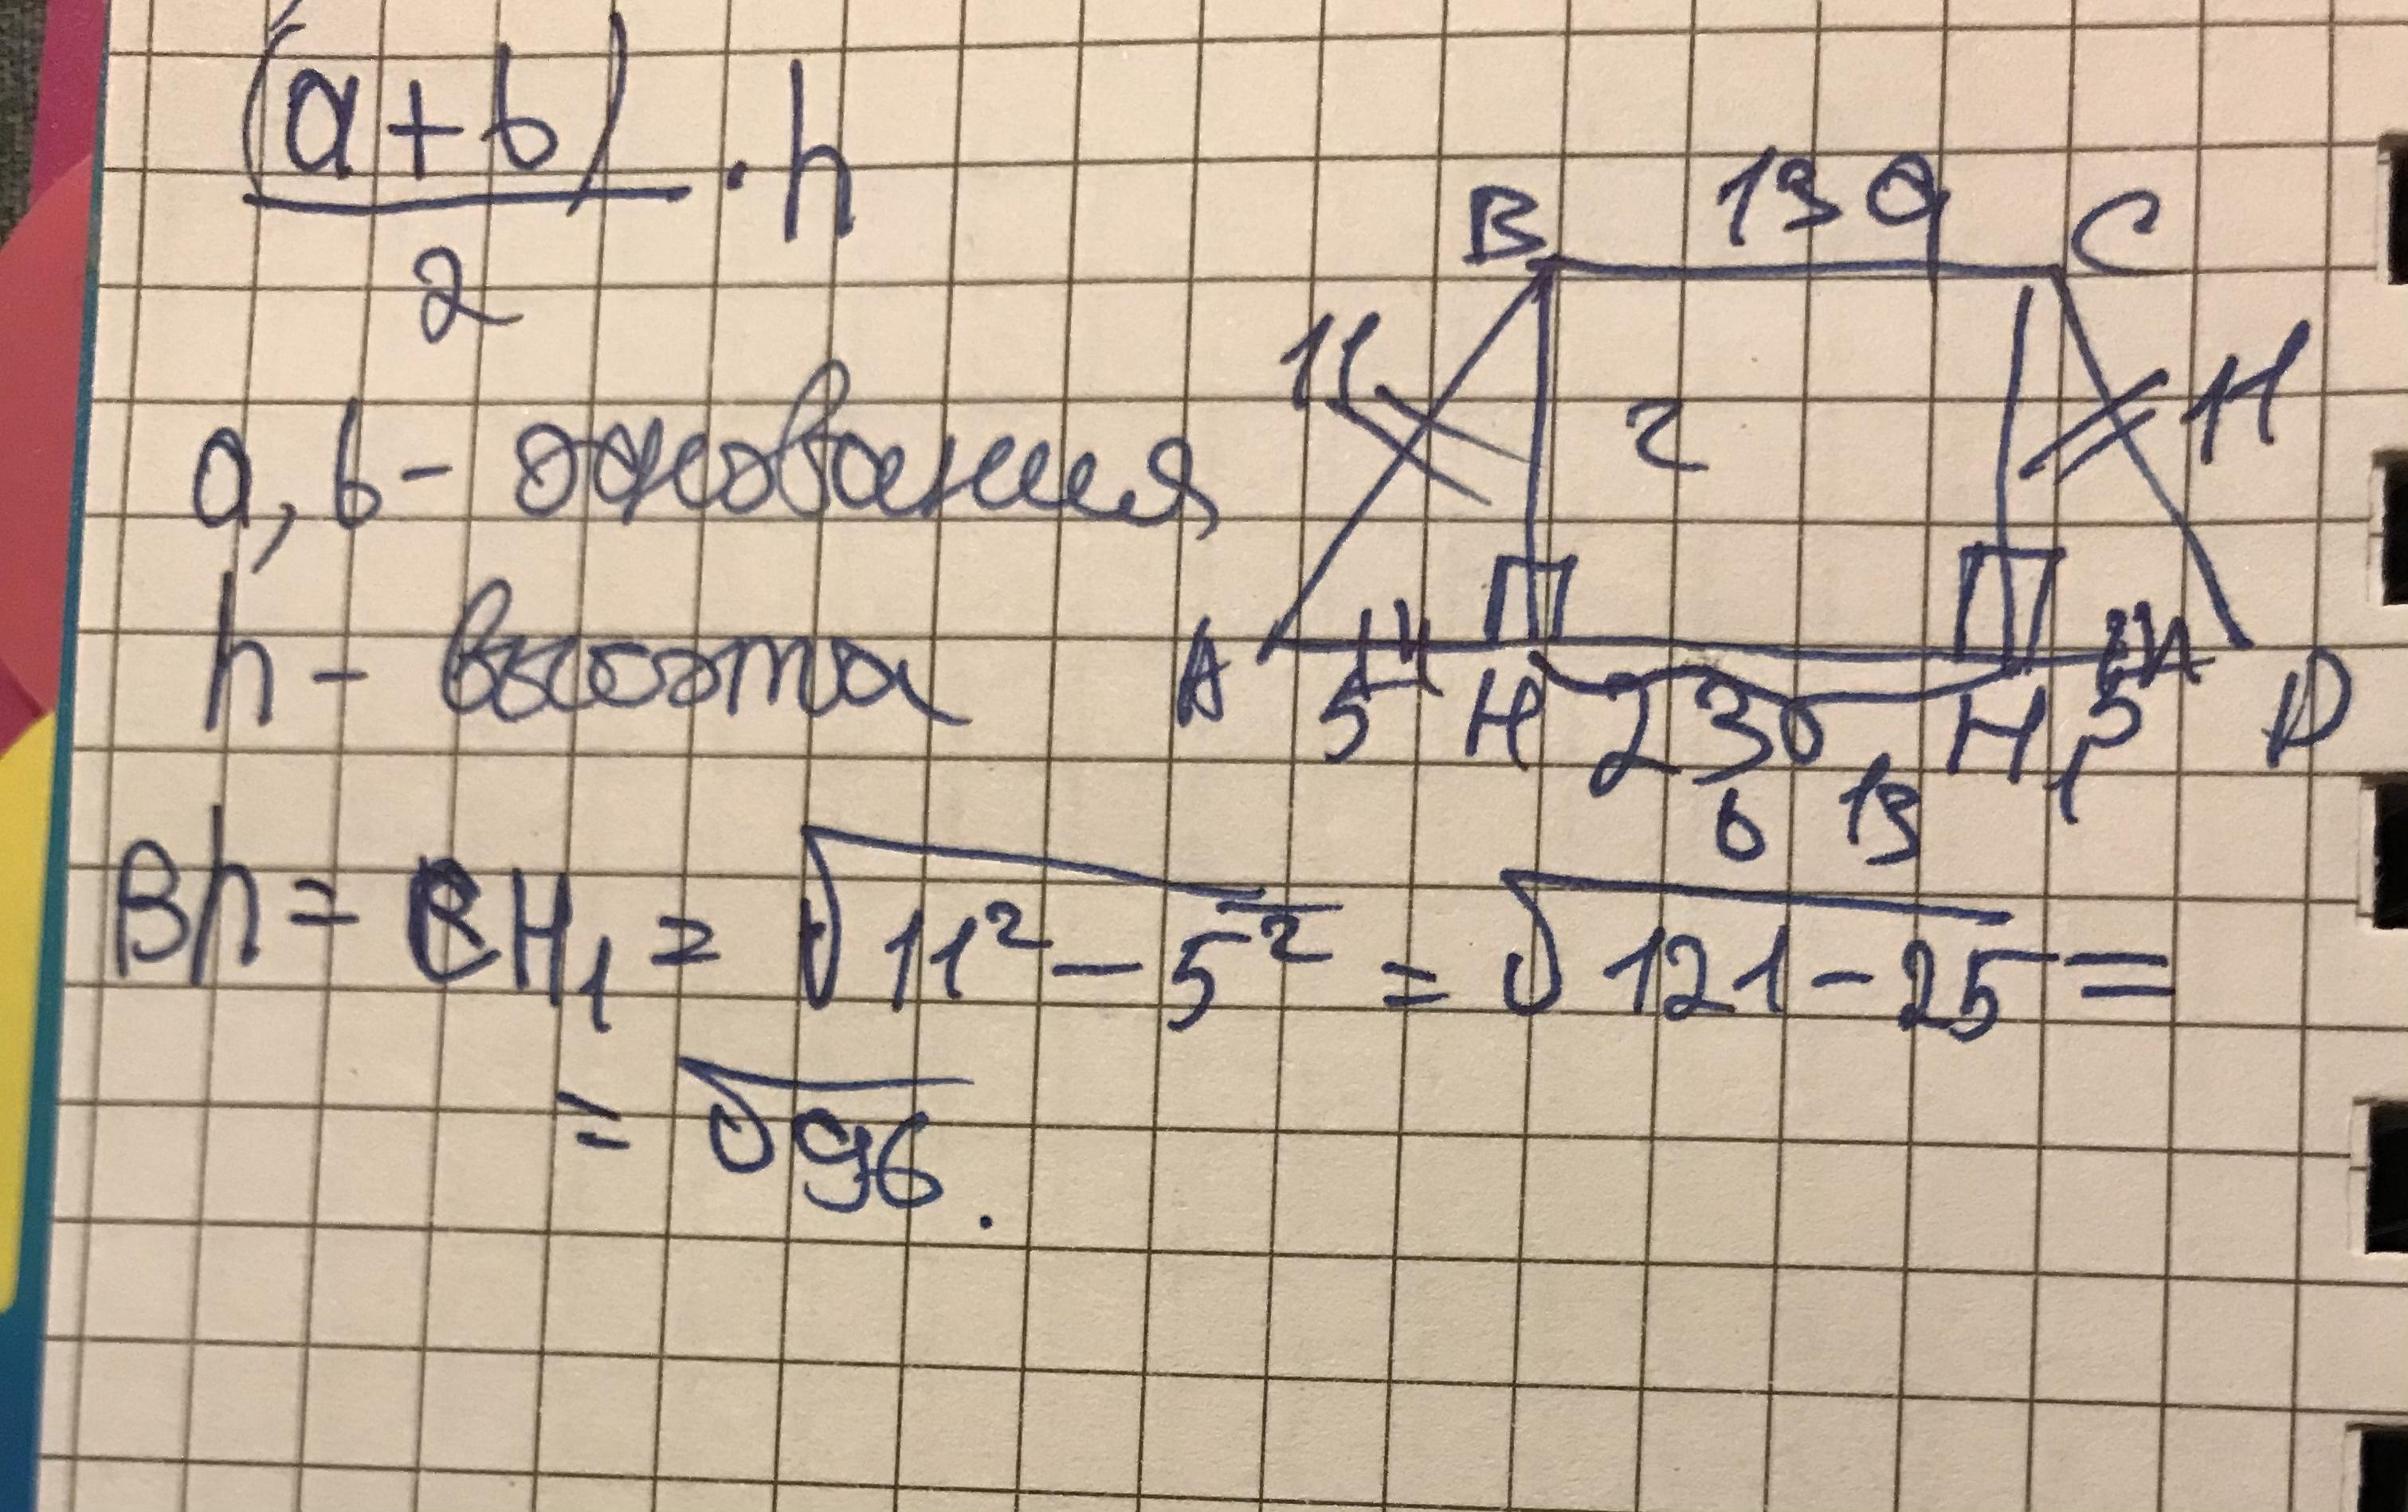 (a+b)/2 · h
a, b - основания
h - высота
B 13 a C
11 2 11
A 5 H 23 H₁ 5 D
b 13
Bh = CH₁ = √11² - 5² = √121 - 25 =
= √96.